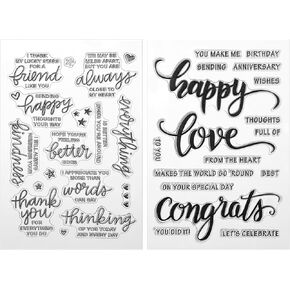 I THANK
MY LUCKY STARS FOR A
friend
LIKE YOU
WE MAY BE
MILES APART,
BUT YOU ARE
always
CLOSE TO
MY HEART
SENDING
happy
THOUGHTS
YOUR WAY
kindness
everything
IS BETTER
HOPE YOU'RE
FEELING
better
SOON
I APPRECIATE YOU
MORE THAN
words
CAN SAY
thank
you
FOR
EVERYTHING
YOU DO
thinking
OF YOU TODAY
AND EVERY DAY
YOU MAKE ME BIRTHDAY
SENDING ANNIVERSARY
happy WISHES
THOUGHTS
love FULL OF
YOU TOO
FROM THE HEART
MAKES THE WORLD GO 'ROUND BEST
ON YOUR SPECIAL DAY
congrats
YOU DID IT! LET'S CELEBRATE